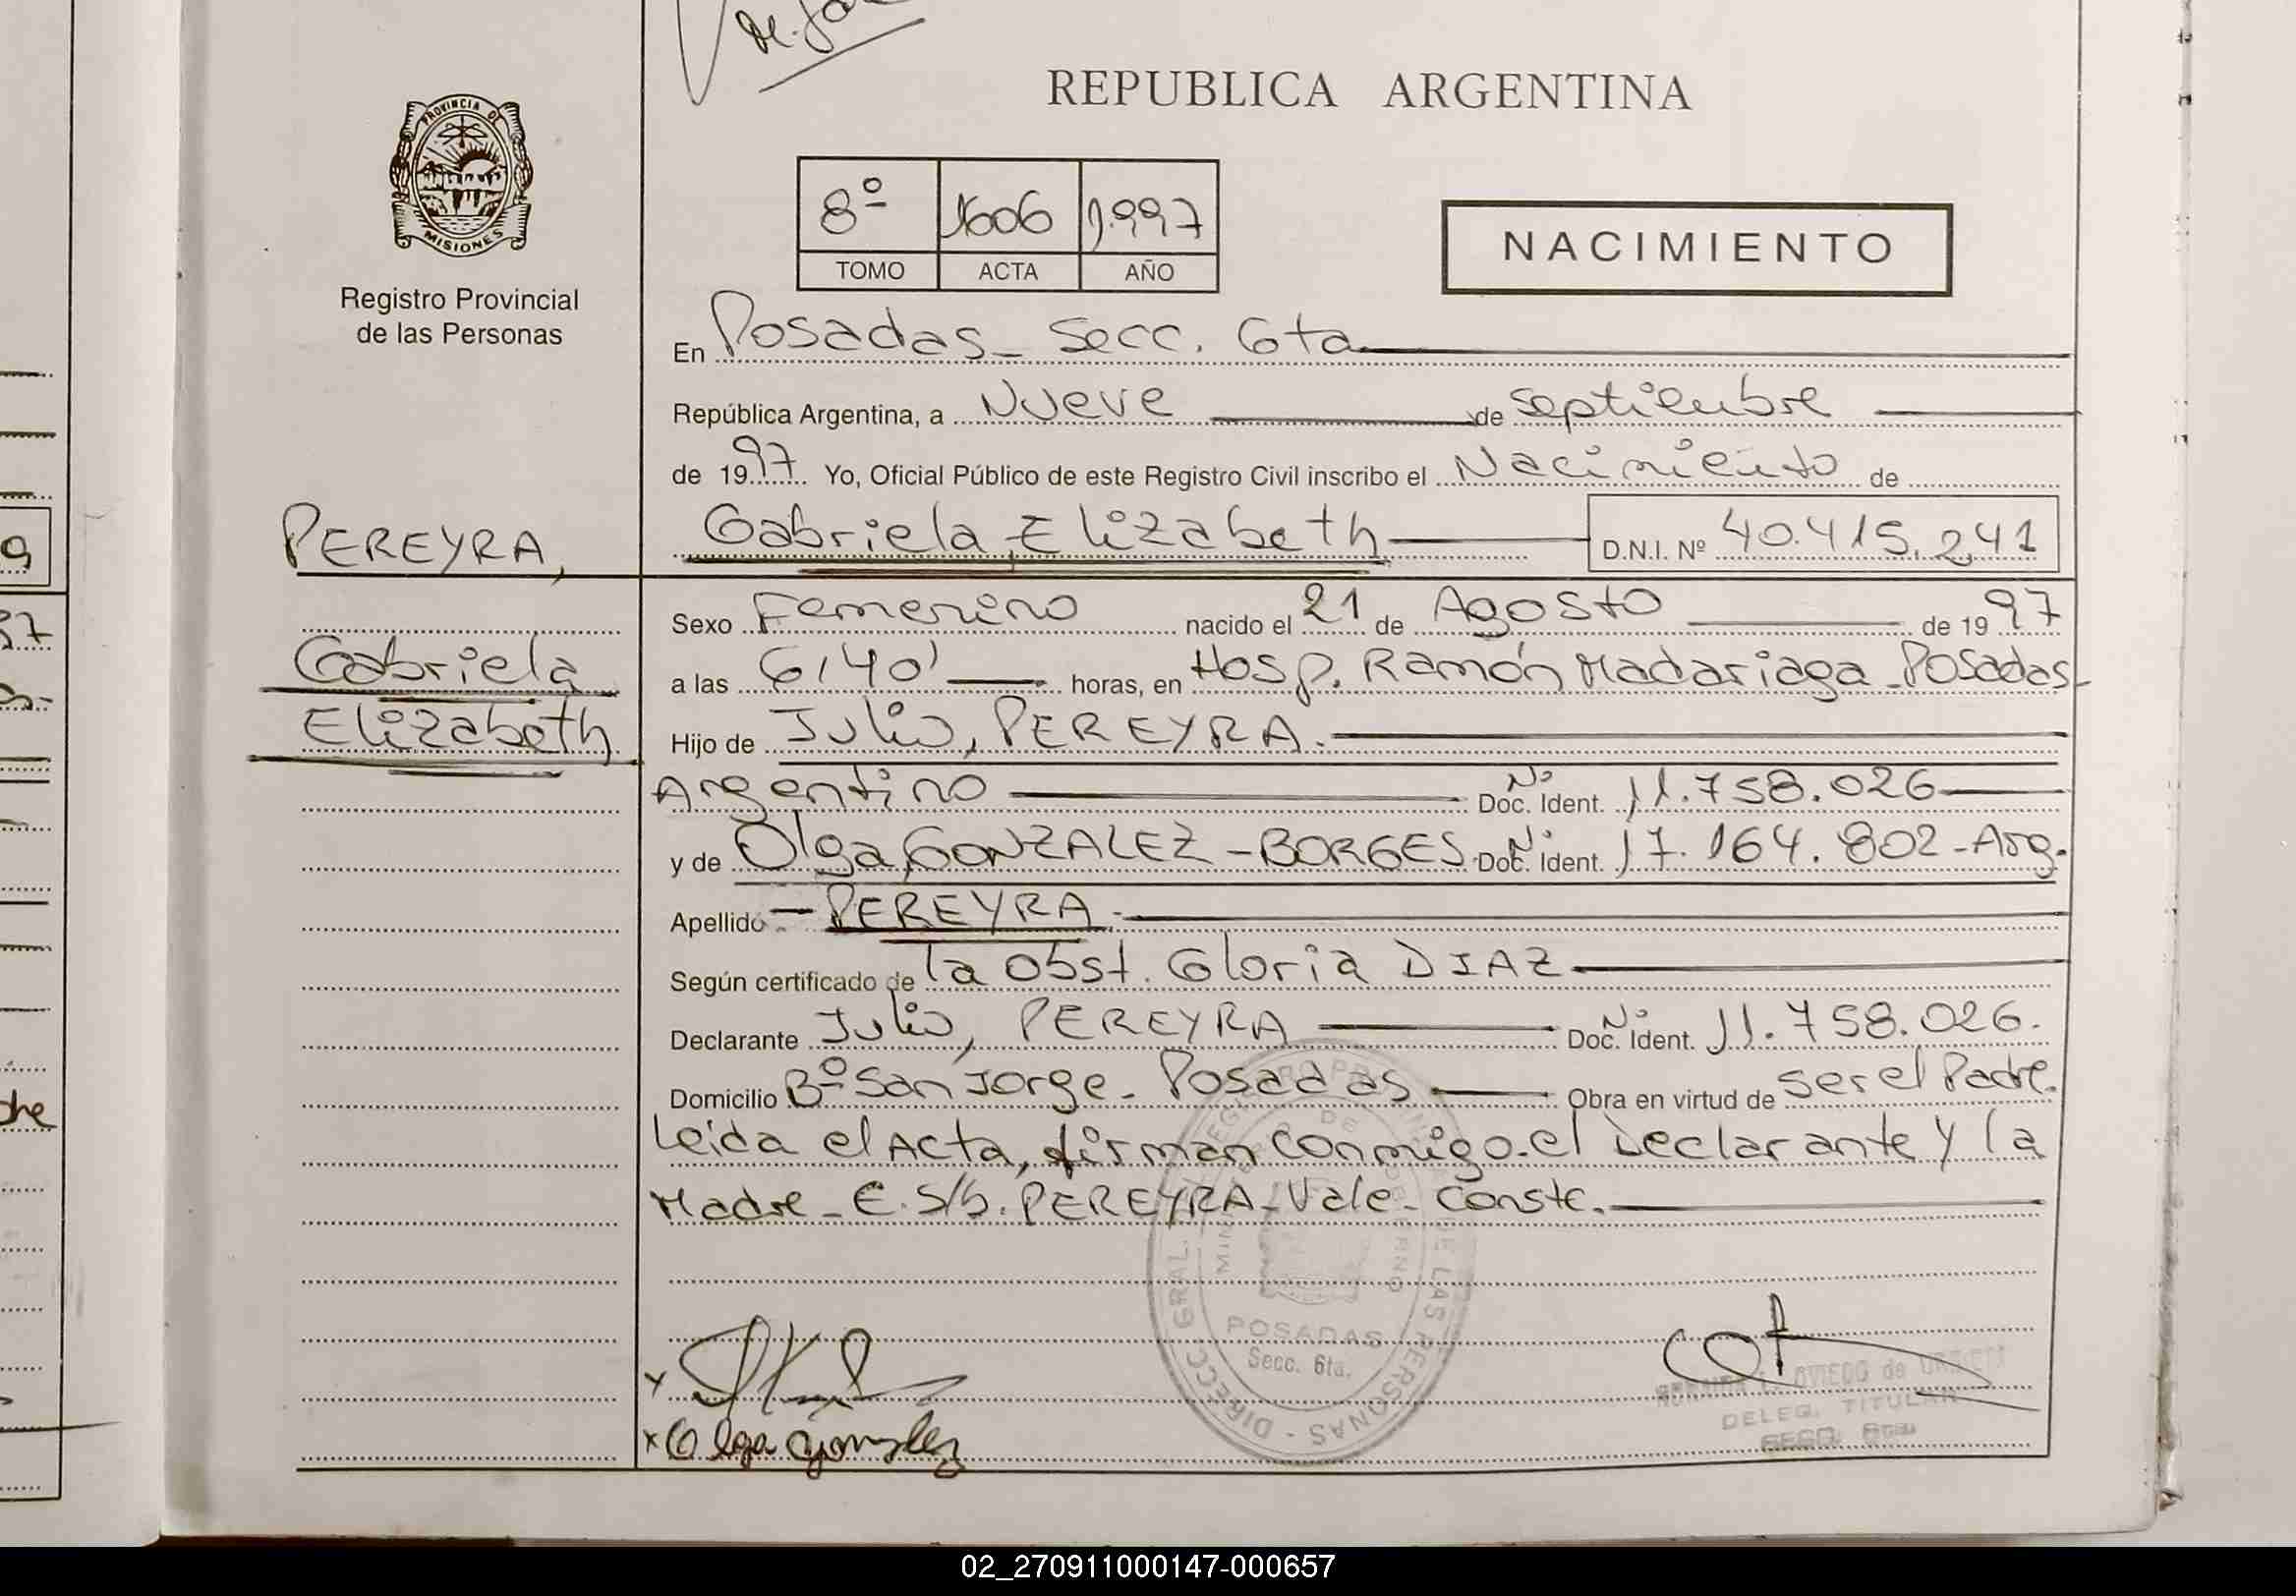 REPUBLICA ARGENTINA
PROVINCIA DE
MISIONES
Registro Provincial
de las Personas
8º 1606 1.997
TOMO ACTA AÑO
NACIMIENTO
En Posadas - Secc. 6ta
República Argentina, a Nueve de Septiembre
de 1997 Yo, Oficial Público de este Registro Civil inscribo el Nacimiento de
PEREYRA,
Gabriela Elizabeth
Gabriela, Elizabeth D.N.I. Nº 40.415.241
Sexo Femenino nacido el 21 de Agosto de 1997
a las 6,40' horas, en Hosp. Ramón Madariaga - Posadas -
Hijo de Julio, PEREYRA.
Argentino Nº Doc. Ident. 11.758.026
y de Olga, GONZALEZ - BORGES Nº Doc. Ident. 17.164.802 - Arg.
Apellido - PEREYRA.
Según certificado de la Obst. Gloria DIAZ
Declarante Julio, PEREYRA Nº Doc. Ident. 11.758.026.
Domicilio Bº San Jorge - Posadas Obra en virtud de ser el Padre.
Leida el Acta, firman conmigo el Declarante y la
Madre - E. S/b. PEREYRA - Vale - Conste.
POSADAS
Secc. 6ta.
x Olga González
OVIEDO de
DELEG. TITULAR
SECC. 6ta
02_270911000147-000657